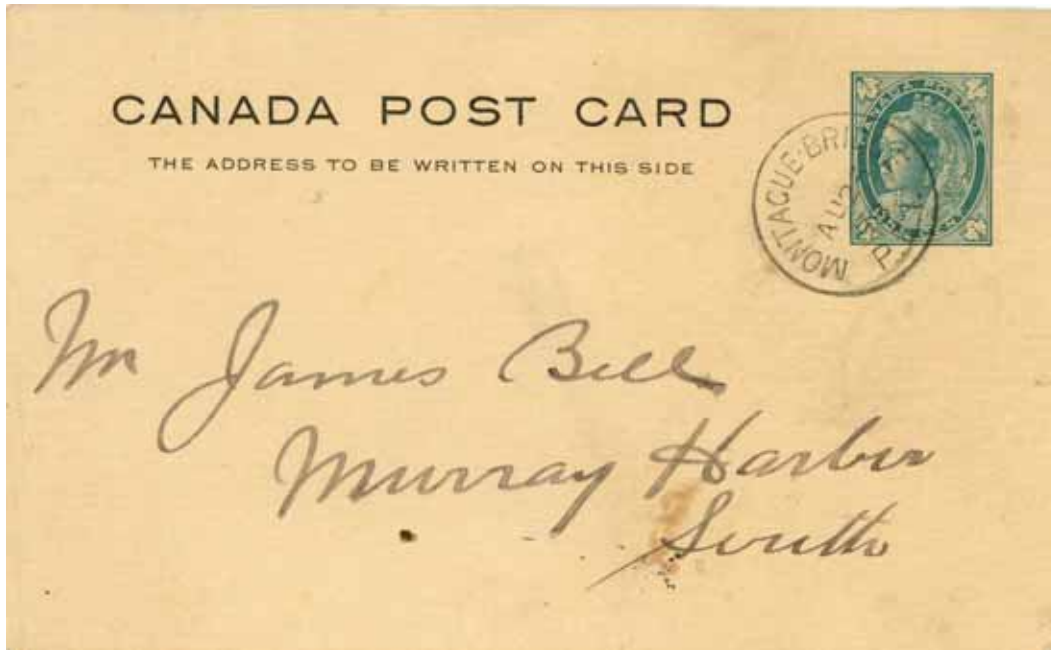 CANADA POST CARD
THE ADDRESS TO BE WRITTEN ON THIS SIDE
MONTAGUE·BRI
AU
P
Mr James Bell
Murray Harbor
South